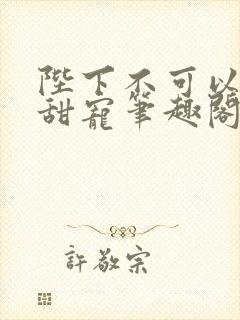 陛下不可以
甜寵筆趣閣
許敬宗